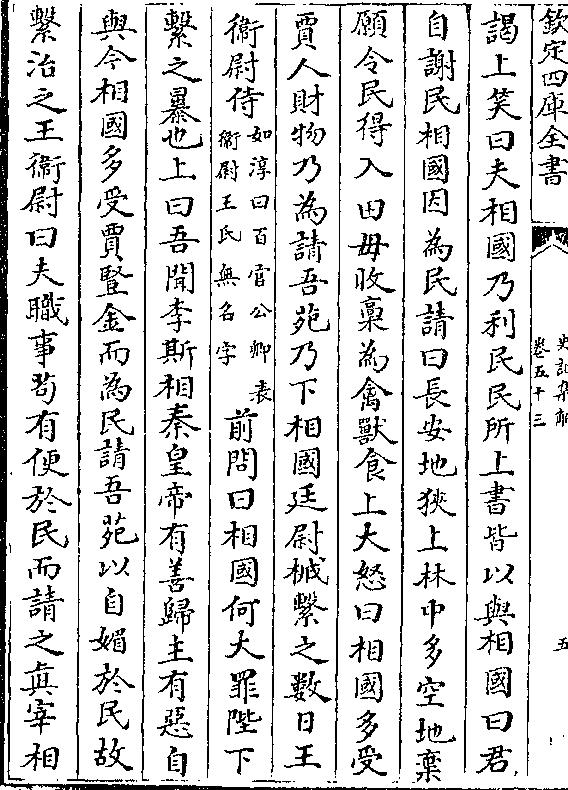 欽定四庫全書
史記集解
卷五十三
五
謁上笑曰夫相國乃利民民所上書皆以與相國曰君
自謝民相國因為民請曰長安地狹上林中多空地棄
願令民得入田毋收稾為禽獸食上大怒曰相國多受
賈人財物乃為請吾苑乃下相國廷尉械繫之數日王
衞尉侍如淳曰百官公卿表衞尉王氏無名字前問曰相國何大罪陛下
繫之暴也上曰吾聞李斯相秦皇帝有善歸主有惡自
與今相國多受賈豎金而為民請吾苑以自媚於民故
繫治之王衞尉曰夫職事茍有便於民而請之真宰相